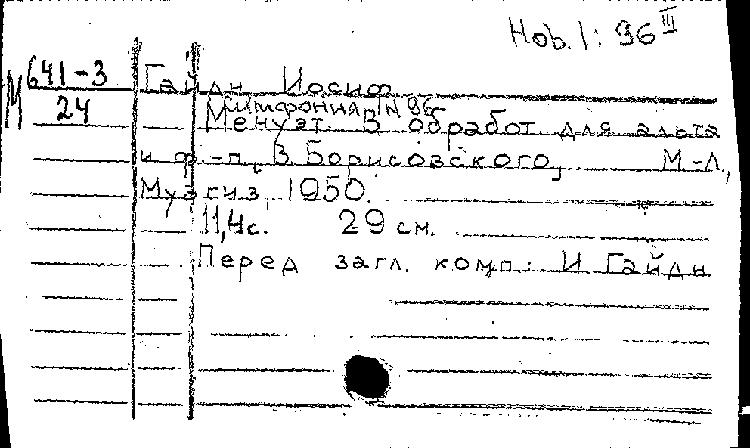 Hob. I: 96 III
М 641-3
24
Гайдн Иосиф
Симфония N 96
Менуэт. В обработ. для альта
и ф.-п. В. Борисовского, М.-Л.,
Музгиз, 1950.
11,4с. 29 см.
Перед загл. комп.: И Гайдн